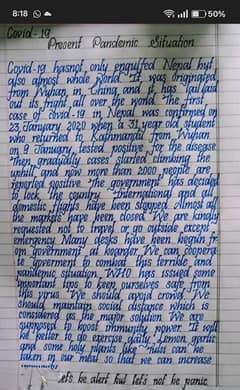 8:18
50%
Covid-19
Present Pandemic Situation
Covid-19 has not only engulfed Nepal but
also almost whole world. It was originated
from Wuhan in China, and it has
out its fright all over the world. The first
case of covid-19 in Nepal was confirmed on
23 January 2020 when a 31 year old student
who returned to Kathmandu from Wuhan
on 9 January, tested positive for the disease.
Then gradually cases started climbing the
uphill and now more than 2000 people are
reported positive. The government has decided
to lock the country. International and all
domestic flights have been stopped. Almost all
the markets have been closed. We are kindly
requested not to travel or go outside except
emergency. Many desks have been begun fr
om government at boarder. We can coopera
te government to combat this terrible and
pandemic situation. WHO has issued some
important tips to keep ourselves safe from
this virus. We should avoid crowd. We
should maintain social distance which is
considered as the major solution. We are
supposed to boost immunity power. It will
be better to do exercise daily. Lemon, garlic
and some holy plants like can be
taken in our meal so that we can increase
let's be alert but let's not be panic.